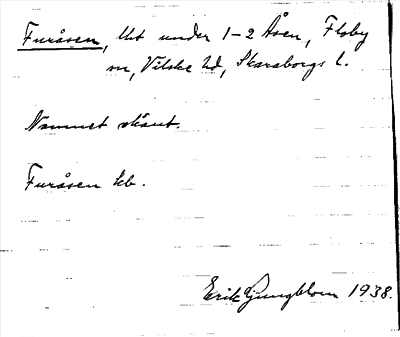 Furåsen, Ut under 1-2 Åsen, Floby
sn, Vilske hd, Skaraborgs l.
Namnet okänt.
Furåsen kb.
Erik Ljungblom 1938.